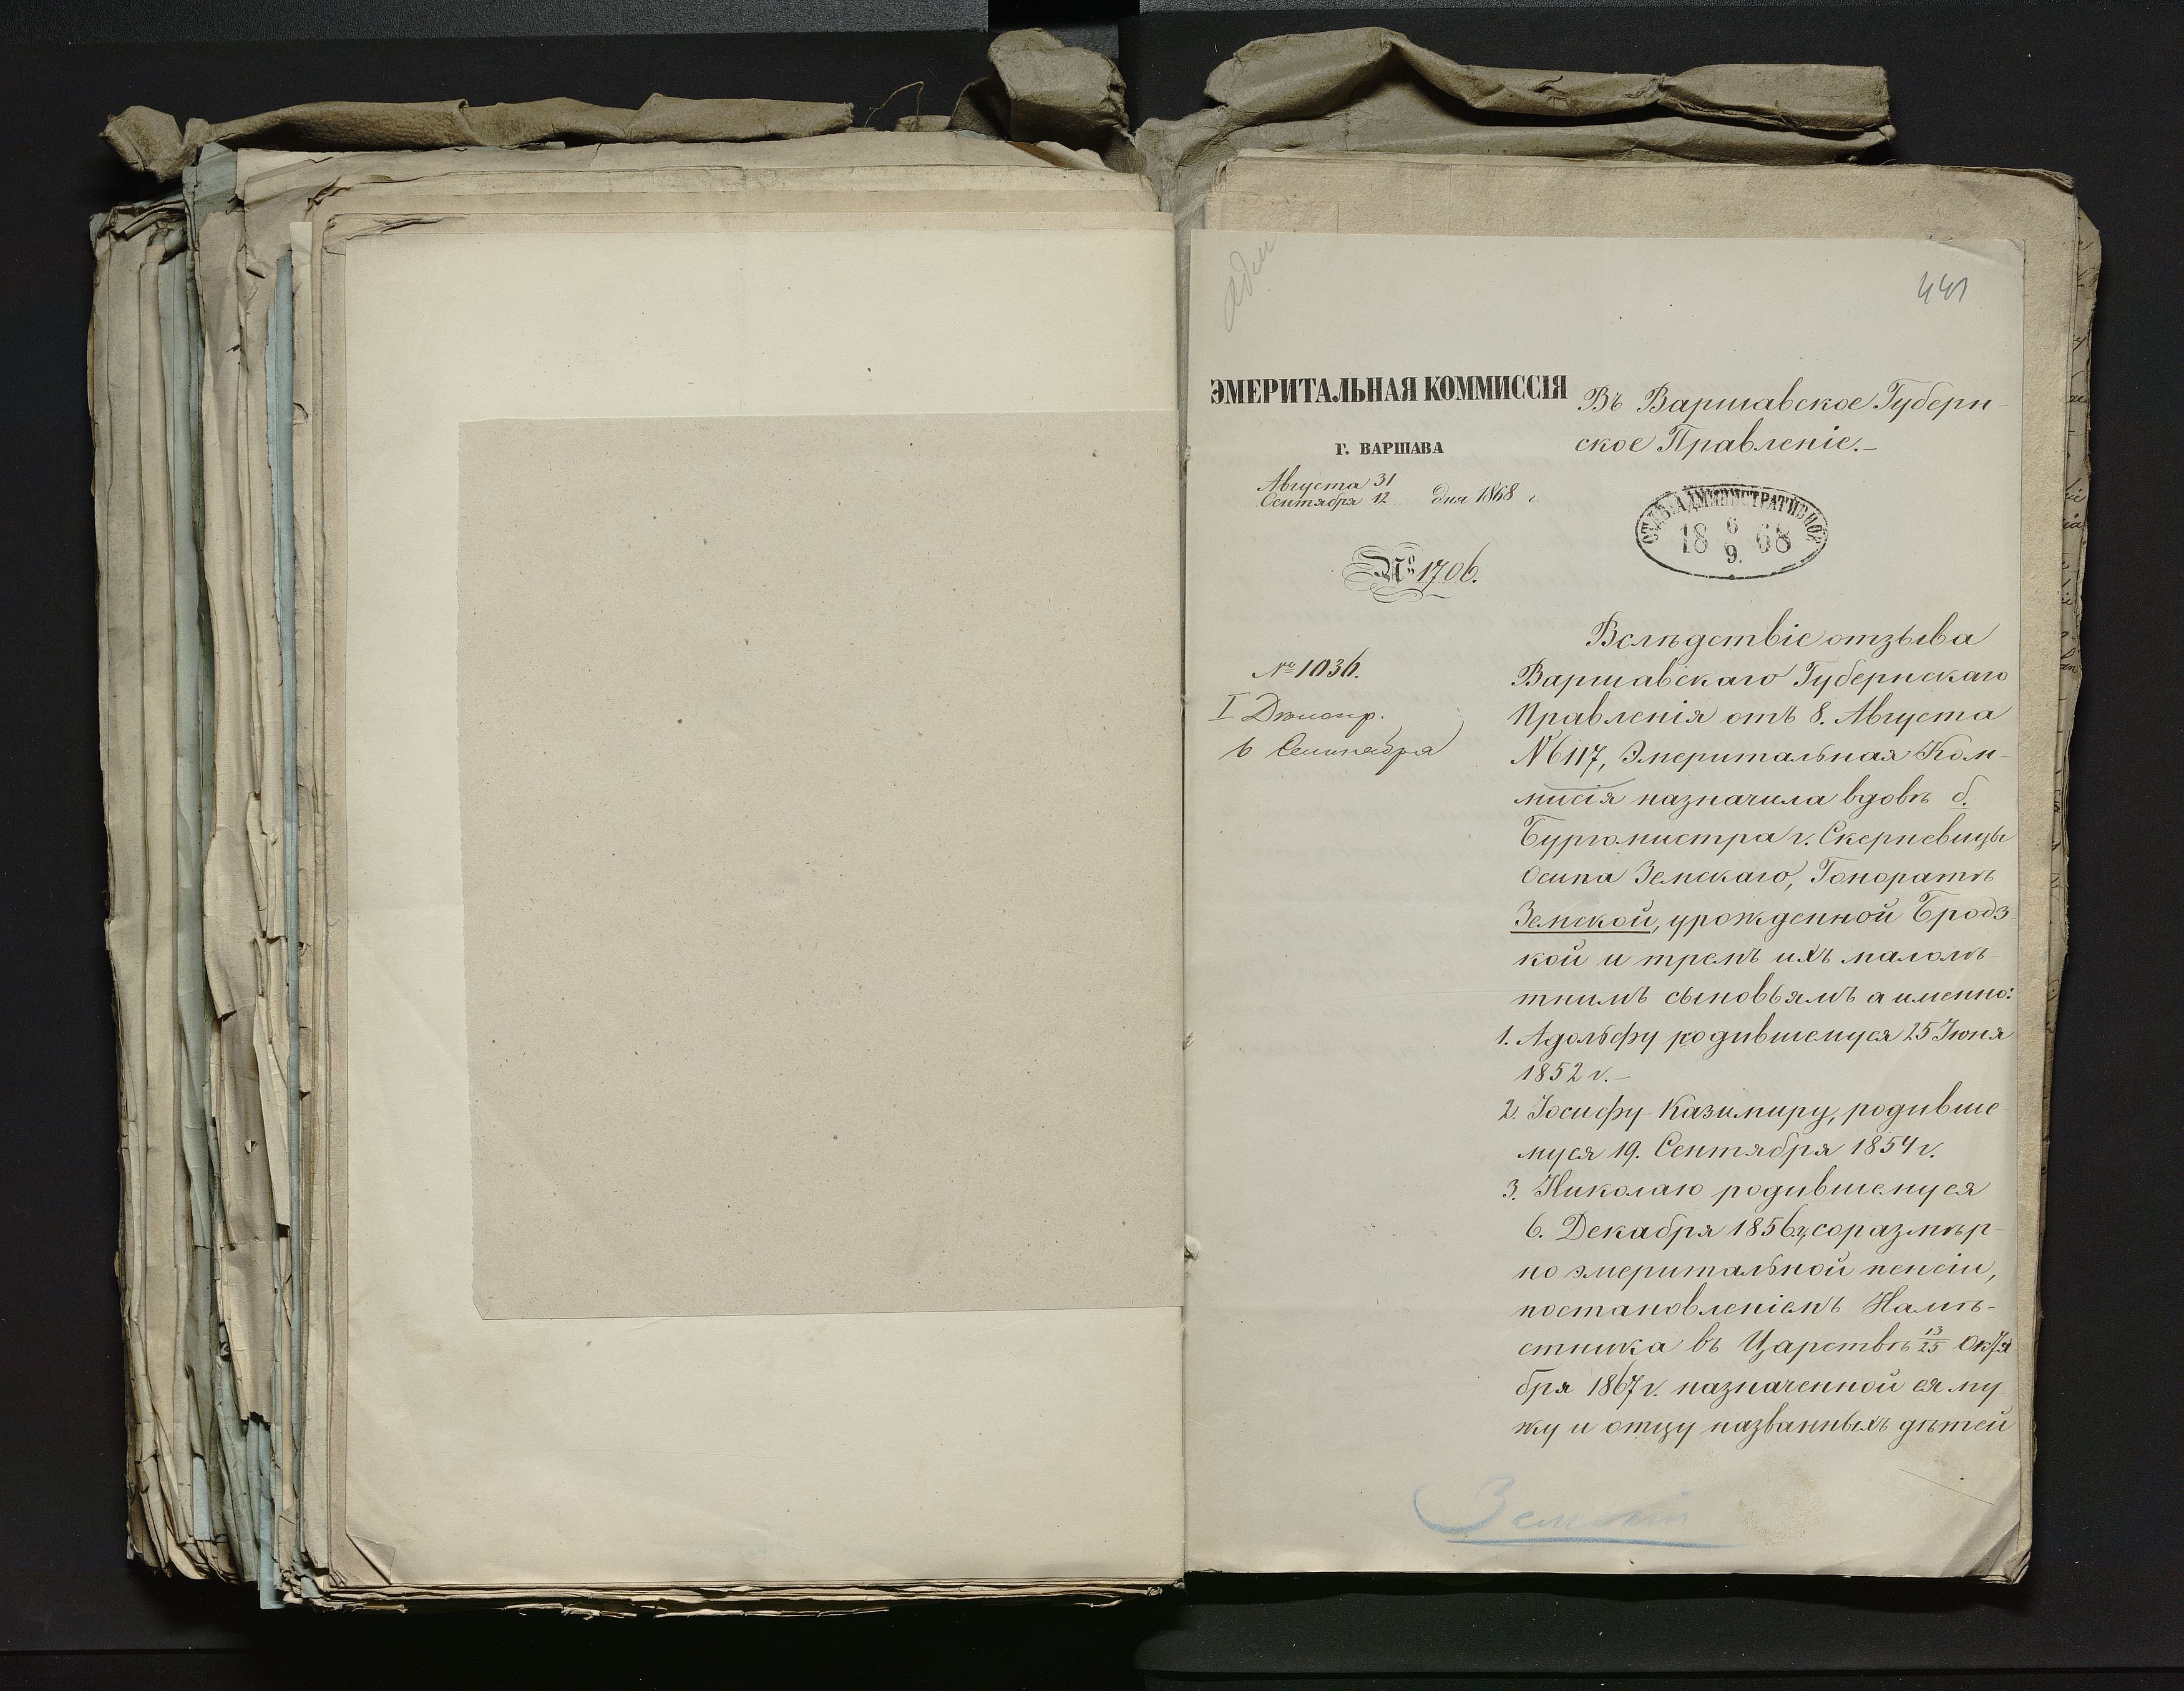 441
ЭМЕРИТАЛЬНАЯ КОММИССІЯ
Г. ВАРШАВА
Августа 31
Сентября 12 дня 1868 г
№ 1706.
Въ Варшавское Губерн-
ское Правленіе.-
ОТДѢЛ. АДМИНИСТРАТИВНОЕ
18 6/9. 68
№ 1036.
6 Сентября
Вслѣдствіе отзыва
Варшавскаго Губернскаго
Правленія отъ 8. Августа
N 6117, Эмеритальная Ком-
мисія назначила вдовѣ б.
Бургомистра г. Скерневицы
Осипа Земскаго, Гоноратѣ
Земской, урожденной Бродз-
кой и тремъ ихъ малолѣ-
тнимъ сыновьямъ а именно:
1. Адольфу родившемуся 25 Іюня
1852 г.-
2. Іосифу-Казимиру, родивше-
муся 19. Сентября 1854 г.
3. Николаю родившемуся
6. Декабря 1856 г, соразмѣр-
но эмеритальной пенсіи,
постановленіемъ Намѣ-
стника въ Царствѣ 13/25 Октя
бря 1867 г. назначенной ея му
жу и отцу названныхъ дѣтей
Земскій